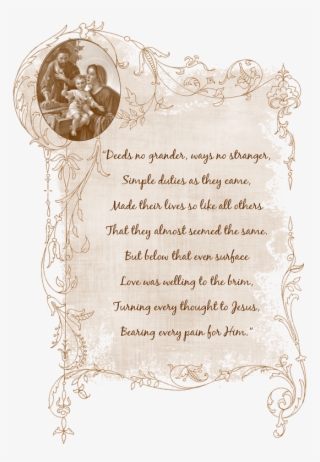 “Deeds no grander, ways no stranger,
Simple duties as they came,
Made their lives so like all others
That they almost seemed the same.
But below that even surface
Love was welling to the brim,
Turning every thought to Jesus,
Bearing every pain for Him.”